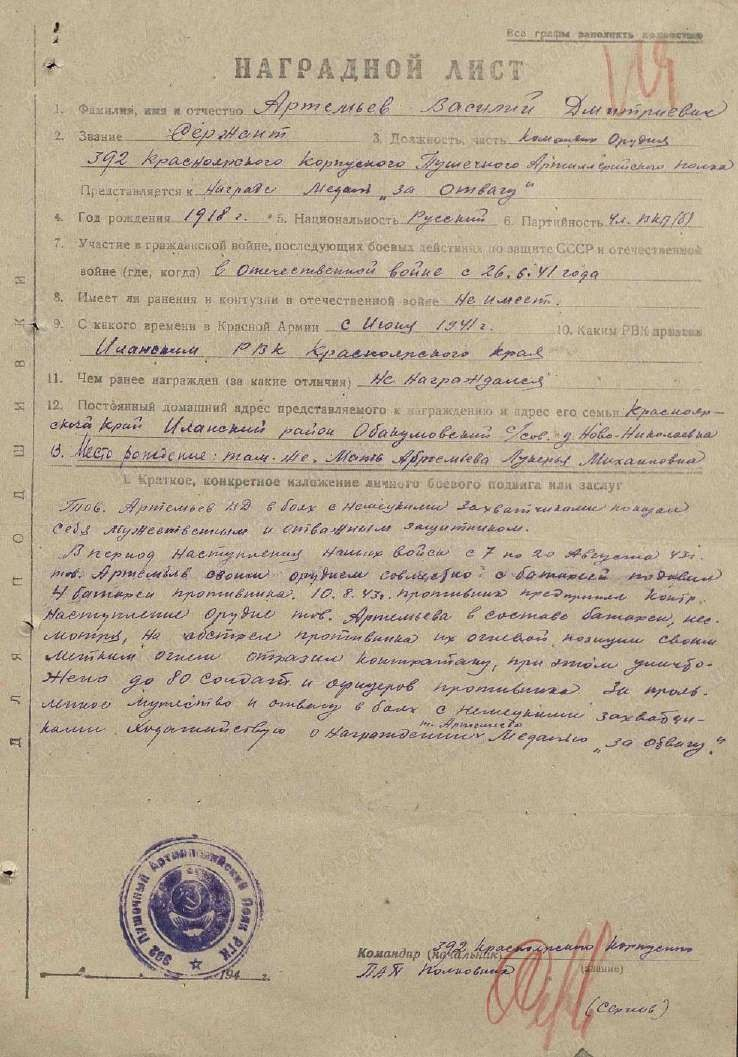 Все графы заполнять полностью
НАГРАДНОЙ ЛИСТ
1. Фамилия, имя и отчество Артемьев Василий Дмитриевич
2. Звание Сержант 3. Должность, часть Командир Орудия
392 Красноярского Корпусного Пушечного Артиллерийского полка
Представляется к Награде Медаль „за Отвагу"
4. Год рождения 1918 г. 5. Национальность Русский 6. Партийность Чл. ВКП(б)
7. Участие в гражданской войне, последующих боевых действиях по защите СССР и отечественной
войне (где, когда) в Отечественной войне с 26.6.41 года
8. Имеет ли ранения и контузии в отечественной войне Не имеет.
9. С какого времени в Красной Армии с Июня 1941г. 10. Каким РВК призван
Иланским РВК Красноярского края
11. Чем ранее награжден (за какие отличия) Не Награждался
12. Постоянный домашний адрес представляемого к награждению и адрес его семьи Краснояр-
ской Край Иланский район Абакумовский с/сов. д. Ново-Николаевка
Место рождения: там-же. Мать Артемьева Лукерья Михаиловна
I. Краткое, конкретное изложение личного боевого подвига или заслуг
Тов. Артемьев ВД в боях с Немецкими захватчиками показал
себя мужественным и отважным защитником.
В период Наступления Наших войск с 7 по 20 Августа 43г.
тов. Артемьев своим орудием совместно с батареей подавил
4 батареи противника. 10.8.43г. противник предпринял контр.
Наступление Орудие тов. Артемьева в составе батареи, нес-
мотря, на обстрел противника их огневой позиции своим
метким огнем отразил контратаку, при этом уничто-
жено до 80 солдат и офицеров противника. За прояв-
ленное мужество и отвагу в боях с немецкими захватчи-
т. Артемьева
ками Ходатайствую о Награждении Медалью „за Отвагу".
392 Пушечный Артиллерийский Полк РГК
194 г.
Командир (начальник) 392 Красноярского Корпусного
ПАП Полковник (звание)
ДЛЯ ПОДШИВКИ